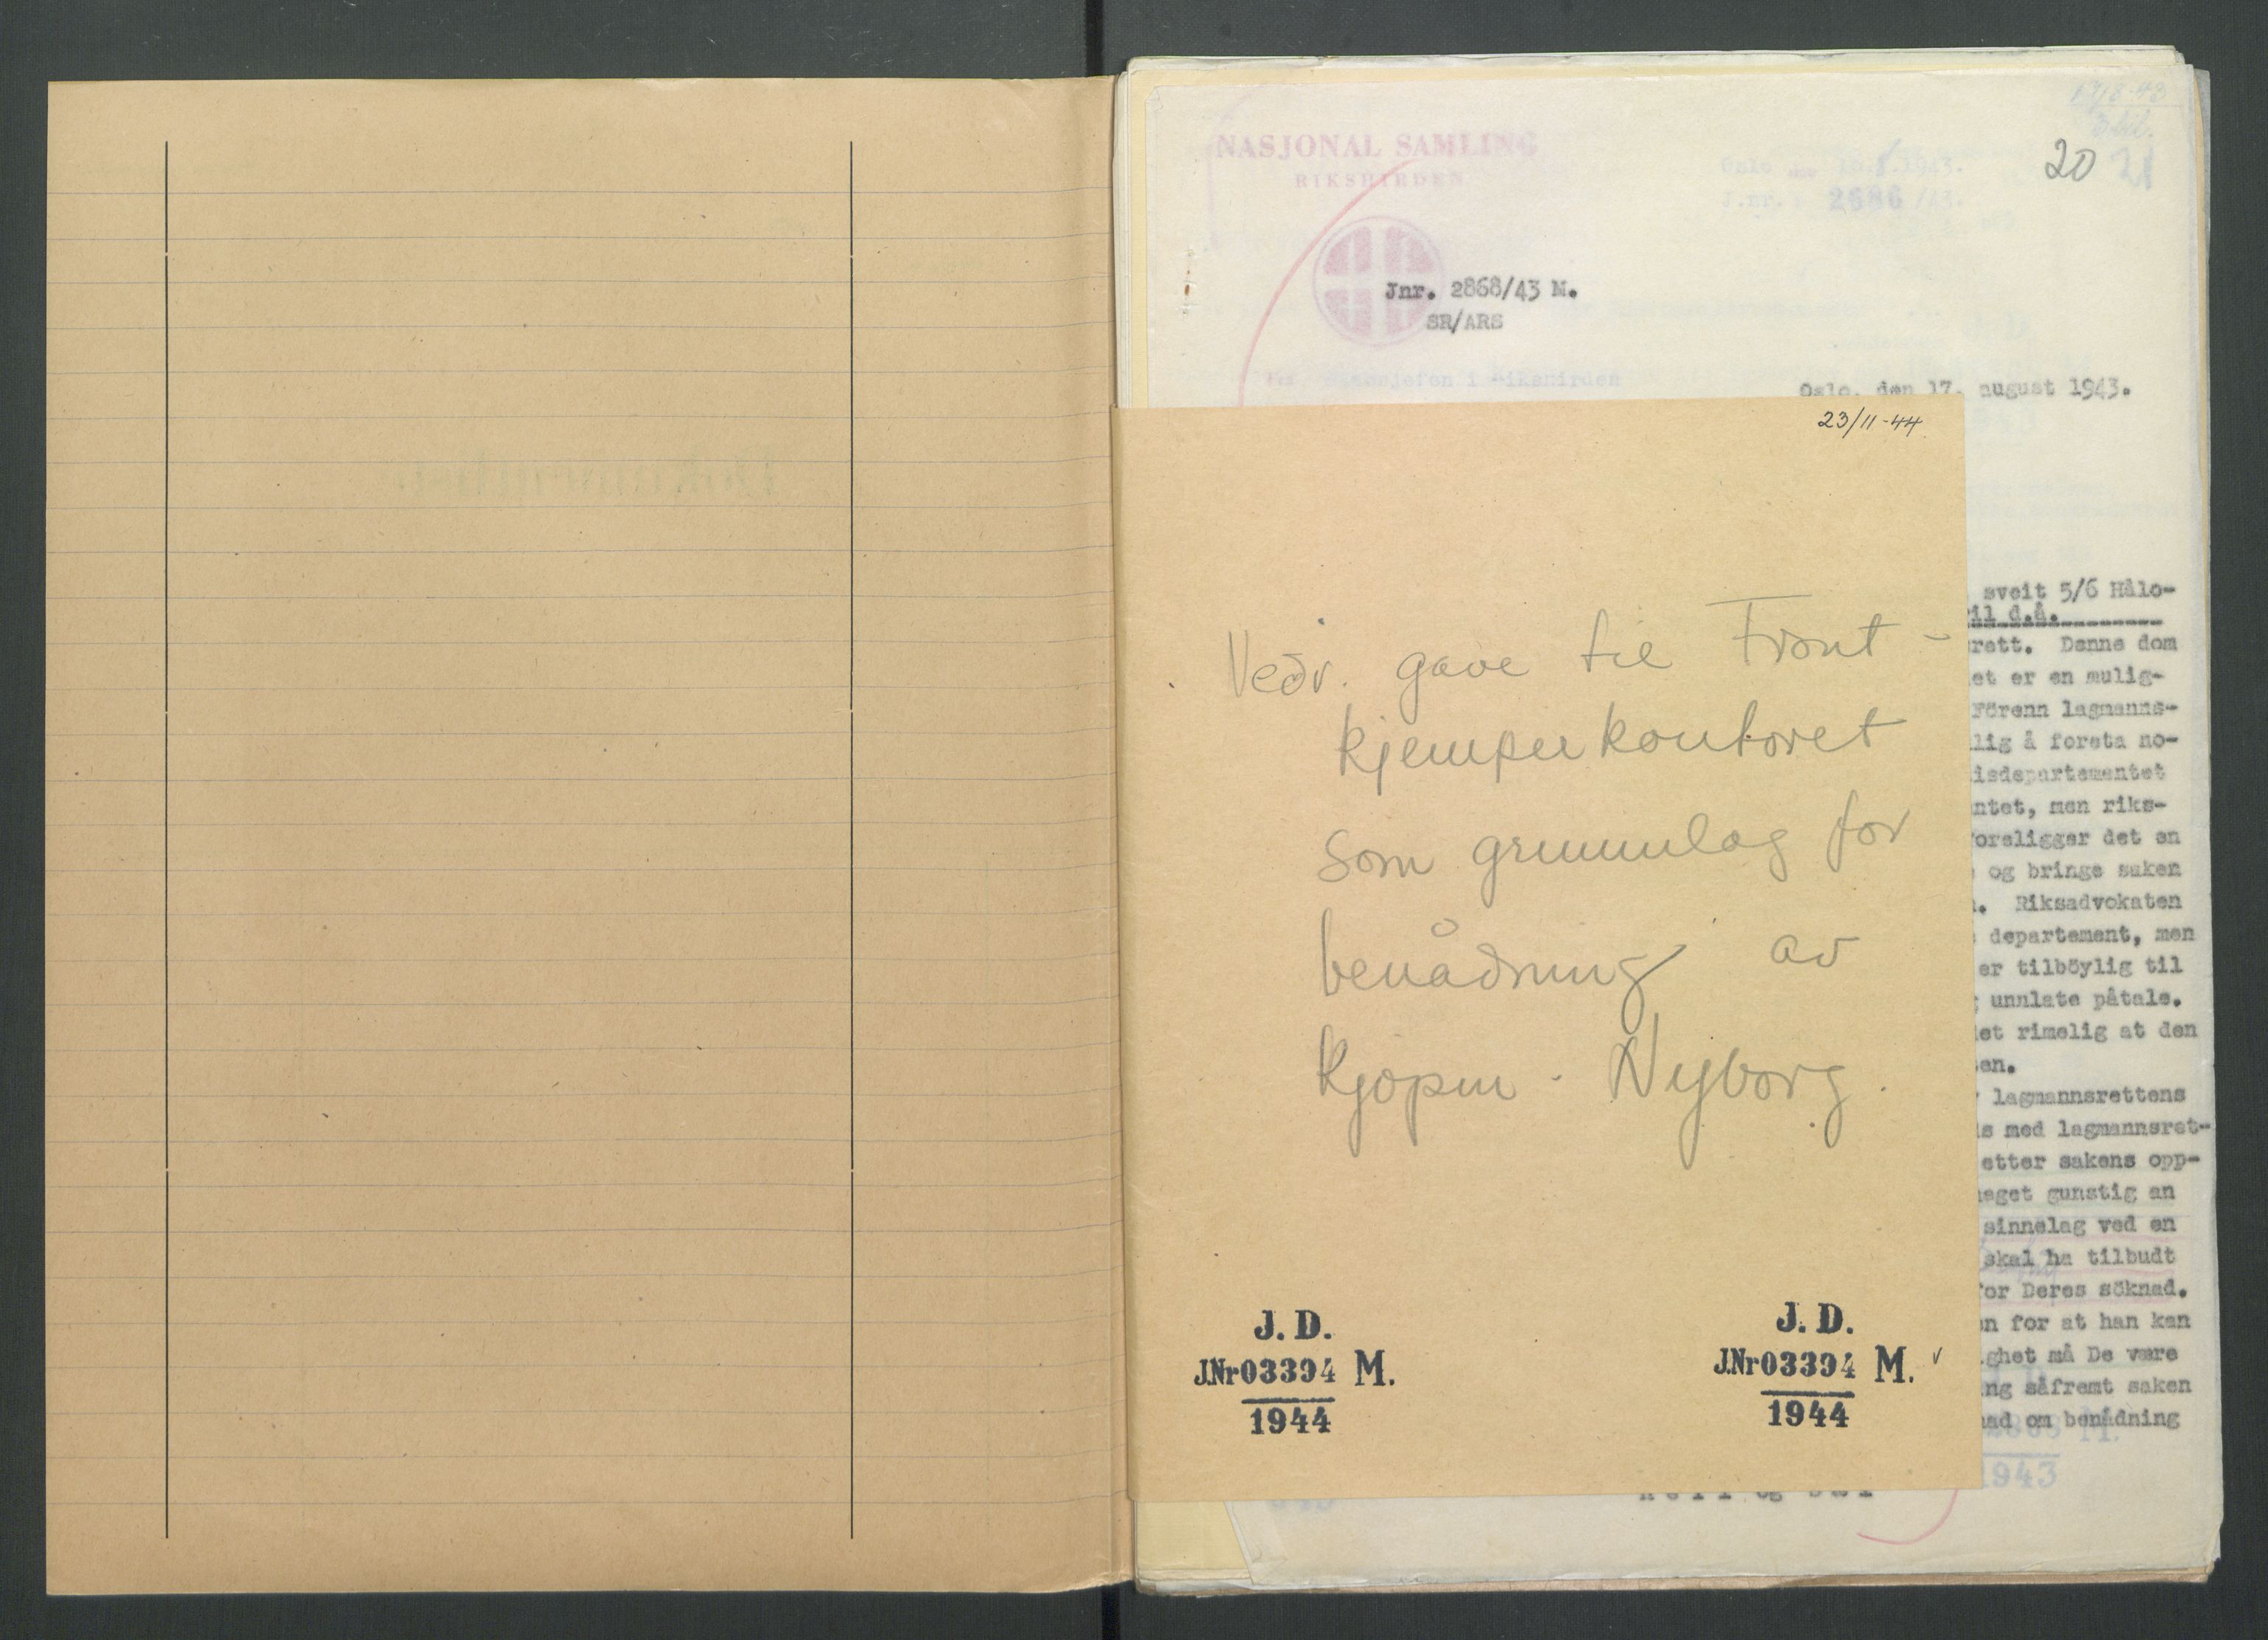 NASJONAL SAMLING
RIKSHIRDEN
20 21
J.nr. 2686/43.
Jnr. 2868/43 M.
SR/ARS
Oslo, den 17. august 1943.
23/11-44
Vedr. gave til Front-
kjemperkontoret
som grunnlag for
benådning av
Kjøpm. Nyborg.
J. D.
J.Nr 03394 M.
1944
J. D.
J.Nr 03394 M. √
1944
sveit 5/6 Hålo-
il d.å.
rett. Denne dom
et er en mulig-
Förenn lagmanns-
lig å foreta no-
isdepartementet
ntet, men riks-
oreligger det en
og bringe saken
. Riksadvokaten
departement, men
er tilböylig til
unnlate påtale.
et rimelig at den
en.
lagmannsrettens
s med lagmannsret-
etter sakens opp-
eget gunstig an
sinnelag ved en
skal ha tilbudt
or Deres söknad.
n for at han kan
ghet må De være
ng såfremt saken
ad om benådning
1943